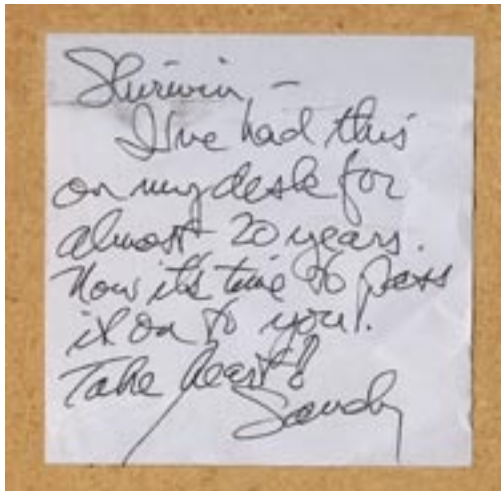 Shirwin –
I've had this
on my desk for
almost 20 years.
Now it's time to pass
it on to you!.
Take heart!
Sandy